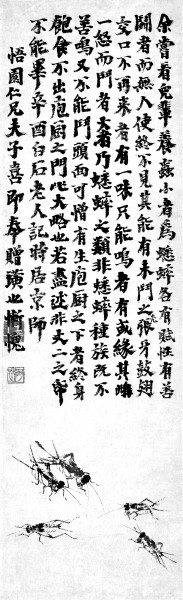 余嘗看兒輩養蟲小者為蟋蟀各有賦性有善
鬥者而無人使終不見其能有未鬥之張牙鼓翅
交口不再來者有一味只能鳴者有或緣其雌
一怒而鬥者大者乃蟋蟀之類非蟋蟀種族既不
善鳴又不能鬥頭面可憎有生於庖廚之下者終身
飽食不出庖廚之門此大略也若盡述非丈二之紙
不能畢辛酉白石老人記時居京師
悟園仁兄夫子喜即奉贈璜也慚愧